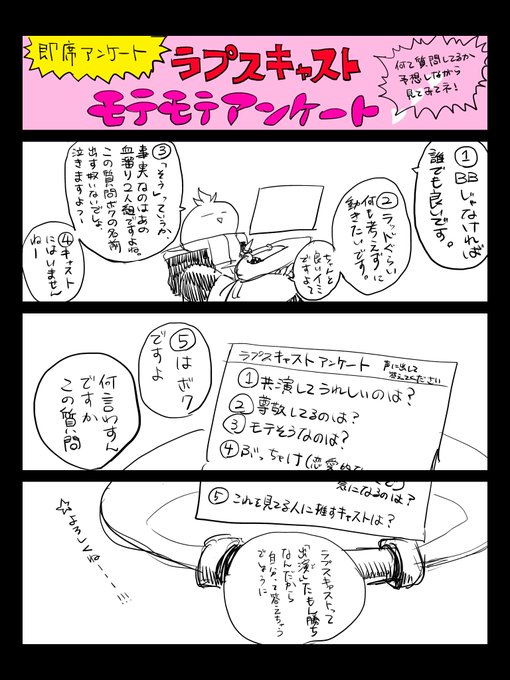 即席アンケート
ラプスキャスト
モテモテアンケート
何て質問してるか
予想しながら
見てみてネ!
①BBじゃなければ
誰でも良いです。
②ラッドぐらい
何も考えずに
動きたいです。
ちゃんと
良いイミ
ですよ?
③「そう」っていうか、
事実なのはあの
血濡り2人組ですよね。
この質問ボクの名前
出す奴いないでしょ、
泣きますよっー
④キャスト
にはいません
ねー
⑤はボク
ですよ
何言わすん
ですか
この質問
ラプスキャストアンケート
声に出して
答えてください
①共演してうれしいのは?
②尊敬してるのは?
③モテそうなのは?
④ぶっちゃけ(恋愛的な
気になるのは?
⑤これを見てる人に推すキャストは?
☆よろしくねー--!!!
ラプスキャストって
「出演」したもん勝ち
なんだから
自分って答えちゃう
でしょうに